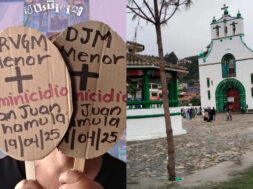 RVGM
Menor
+
minicidio
an Juan
hamula
4/04/25
DJM
Menor
+
minicidio
an Juan
amula
/04/25